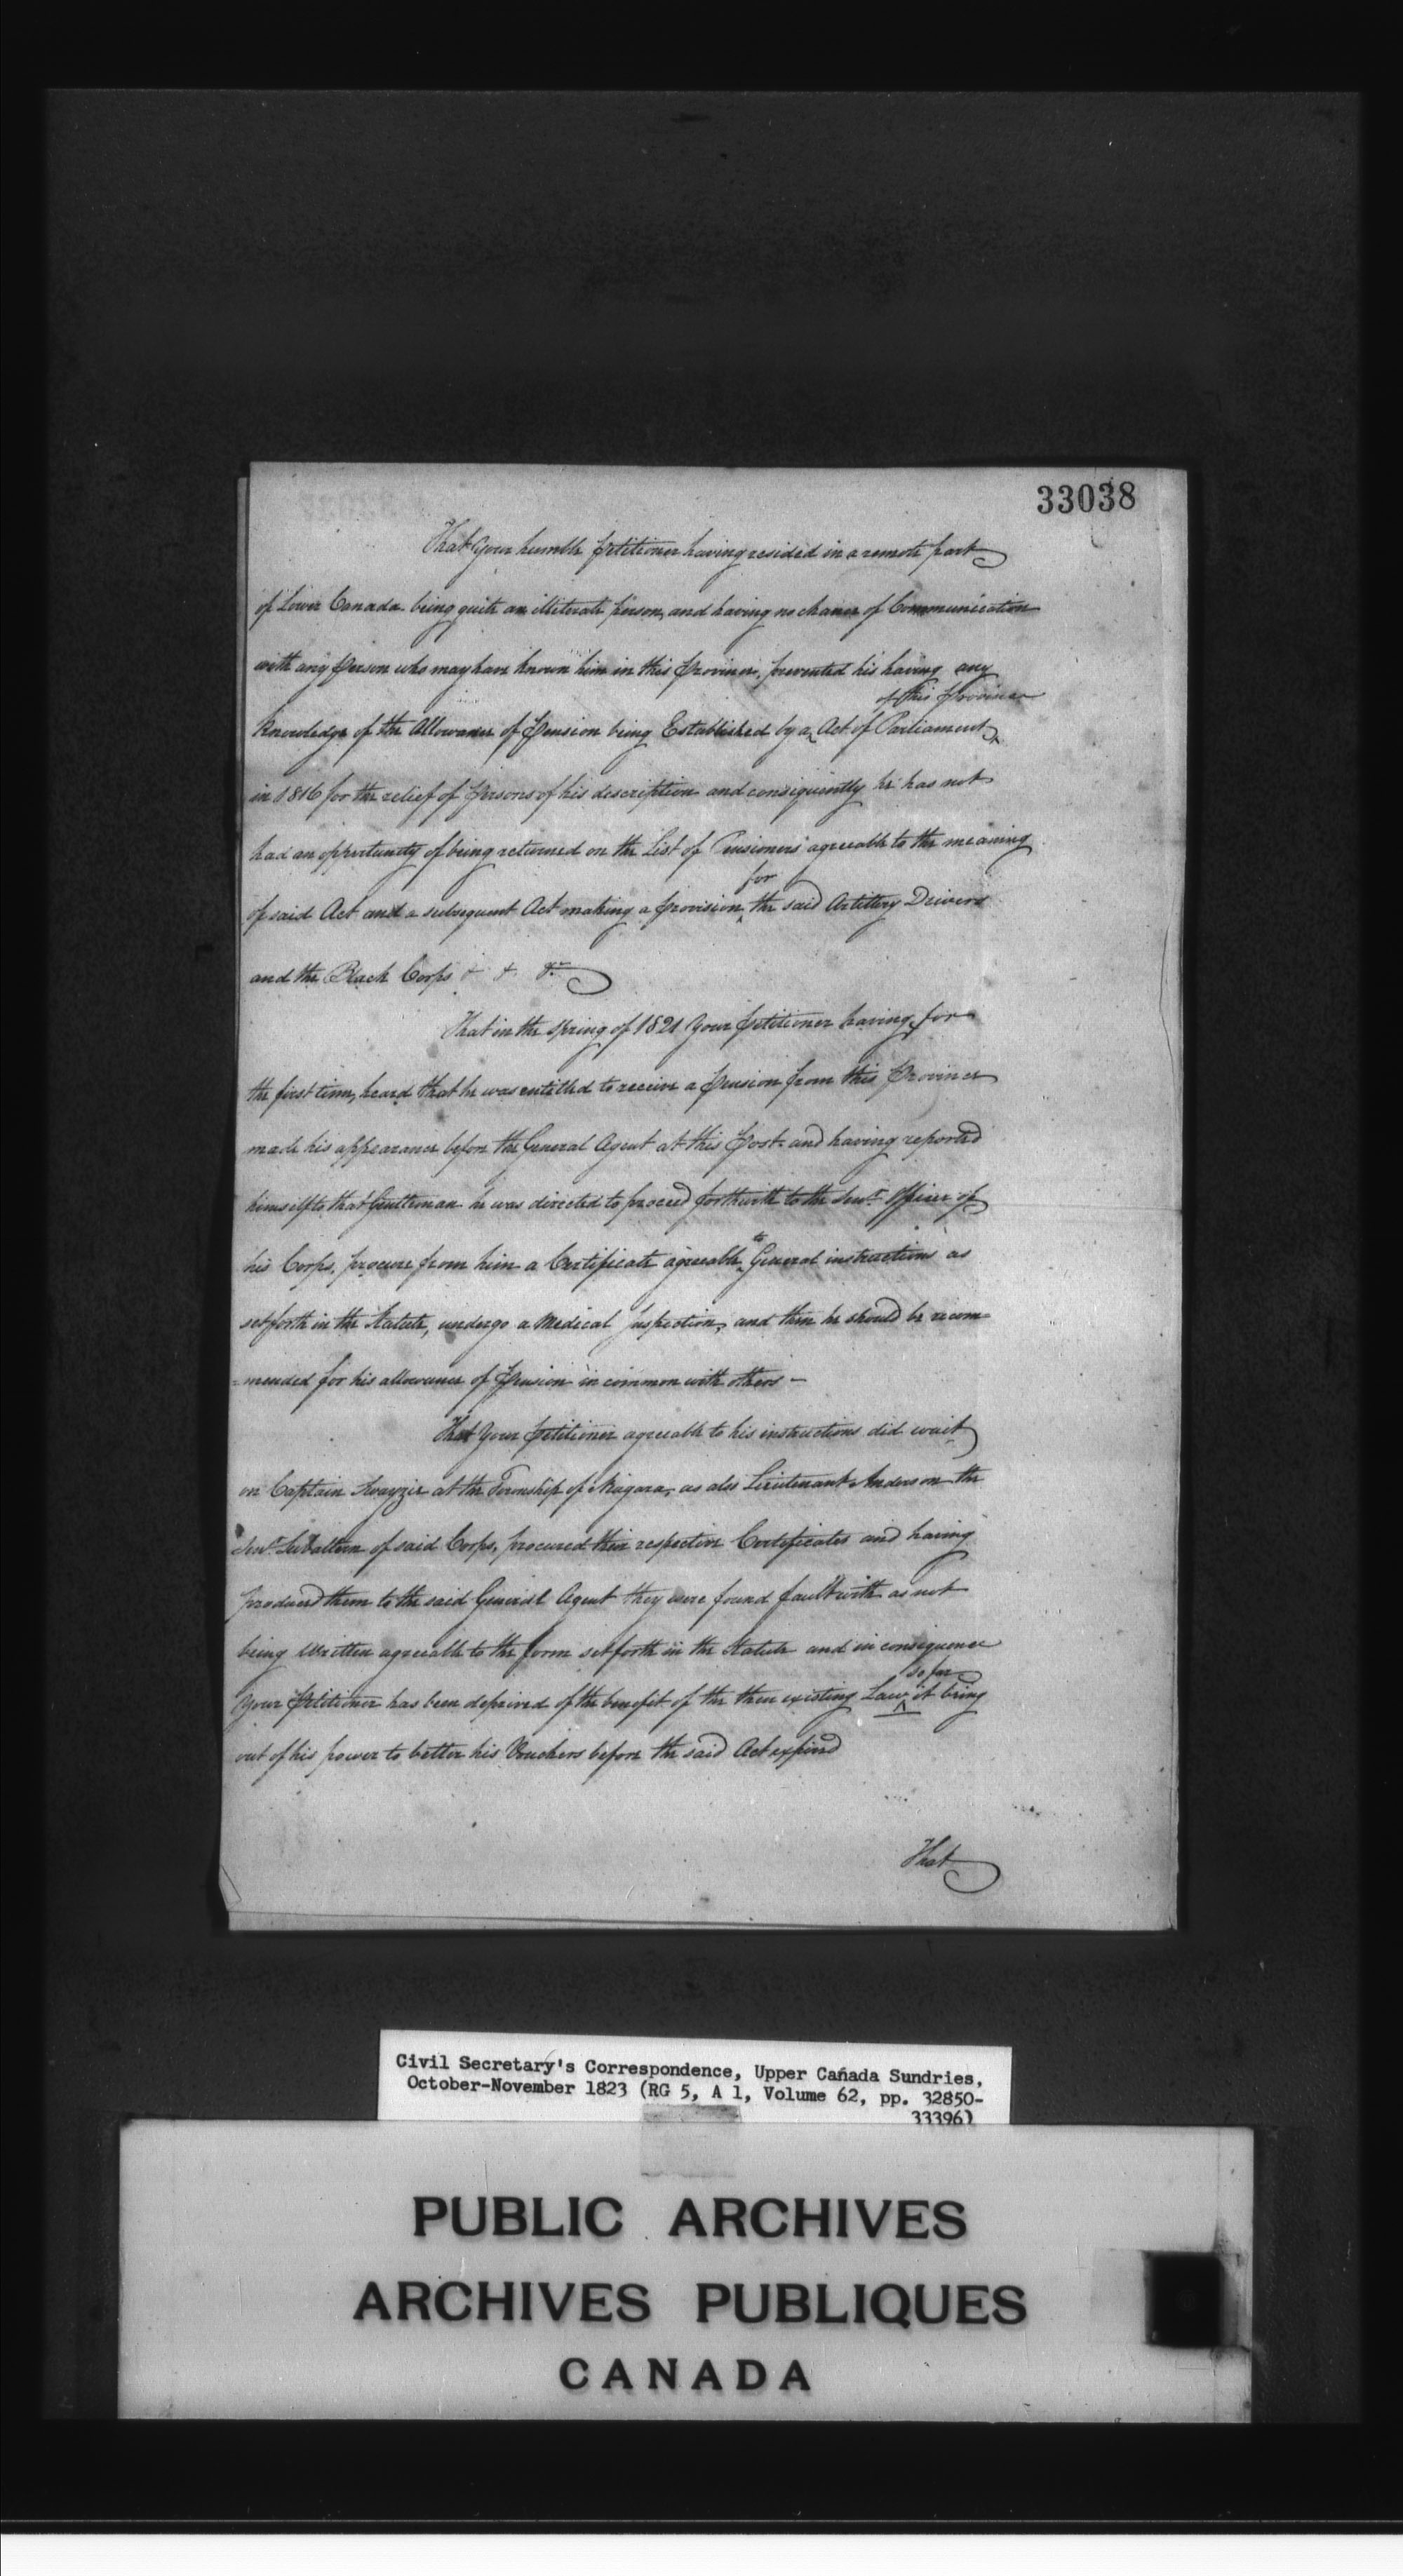 33038
That Your humble petitioner having resided in a remote part
of Lower Canada being quite an illiterate person, and having no chance of Communication
with any person who may have known him in this province, prevented his having any
of this province
knowledge of the Allowance of Pension being Established by a Act of Parliament
in 1816 for the relief of persons of his description and consiquently he has not
had an oppertunity of being returned on the List of Pensioners agreeable to the meaning
for
of said Act and a subsequent Act making a provision the said Artillery Drivers
and the Black Corps & & &c
That in the spring of 1821 Your petitioner having for
the first time, heard that he was entitled to receive a pension from this Province
made his appearance before the General Agent at this Post and having reported
himself to that Gentleman he was directed to proceed forthwith to the Senr Officer of
to
his Corps, procure from him a Certificate agreeable General instructions as
set forth in the Statute, undergo a Medical Inspection, and then he should be recom
=mended for his allowance of Pension in common with others –
That Your petitioner agreeable to his instructions did wait
on Captain Swayzie at the Township of Niagara, as also Lieutenant Anderson the
Senr Subaltern of said Corps, procured their respective Certificates and having
produced them to the said General Agent they were found fault with as not
being written agreeable to the form set forth in the Statute and in consequence
so far
Your Petitioner has been deprived of the benefit of the then existing Law it being
out of his power to better his Vouchers before the said Act expired
That
Civil Secretary's Correspondence, Upper Canada Sundries,
October-November 1823 (RG 5, A 1, Volume 62, pp. 32850-
33396)
PUBLIC ARCHIVES
ARCHIVES PUBLIQUES
CANADA